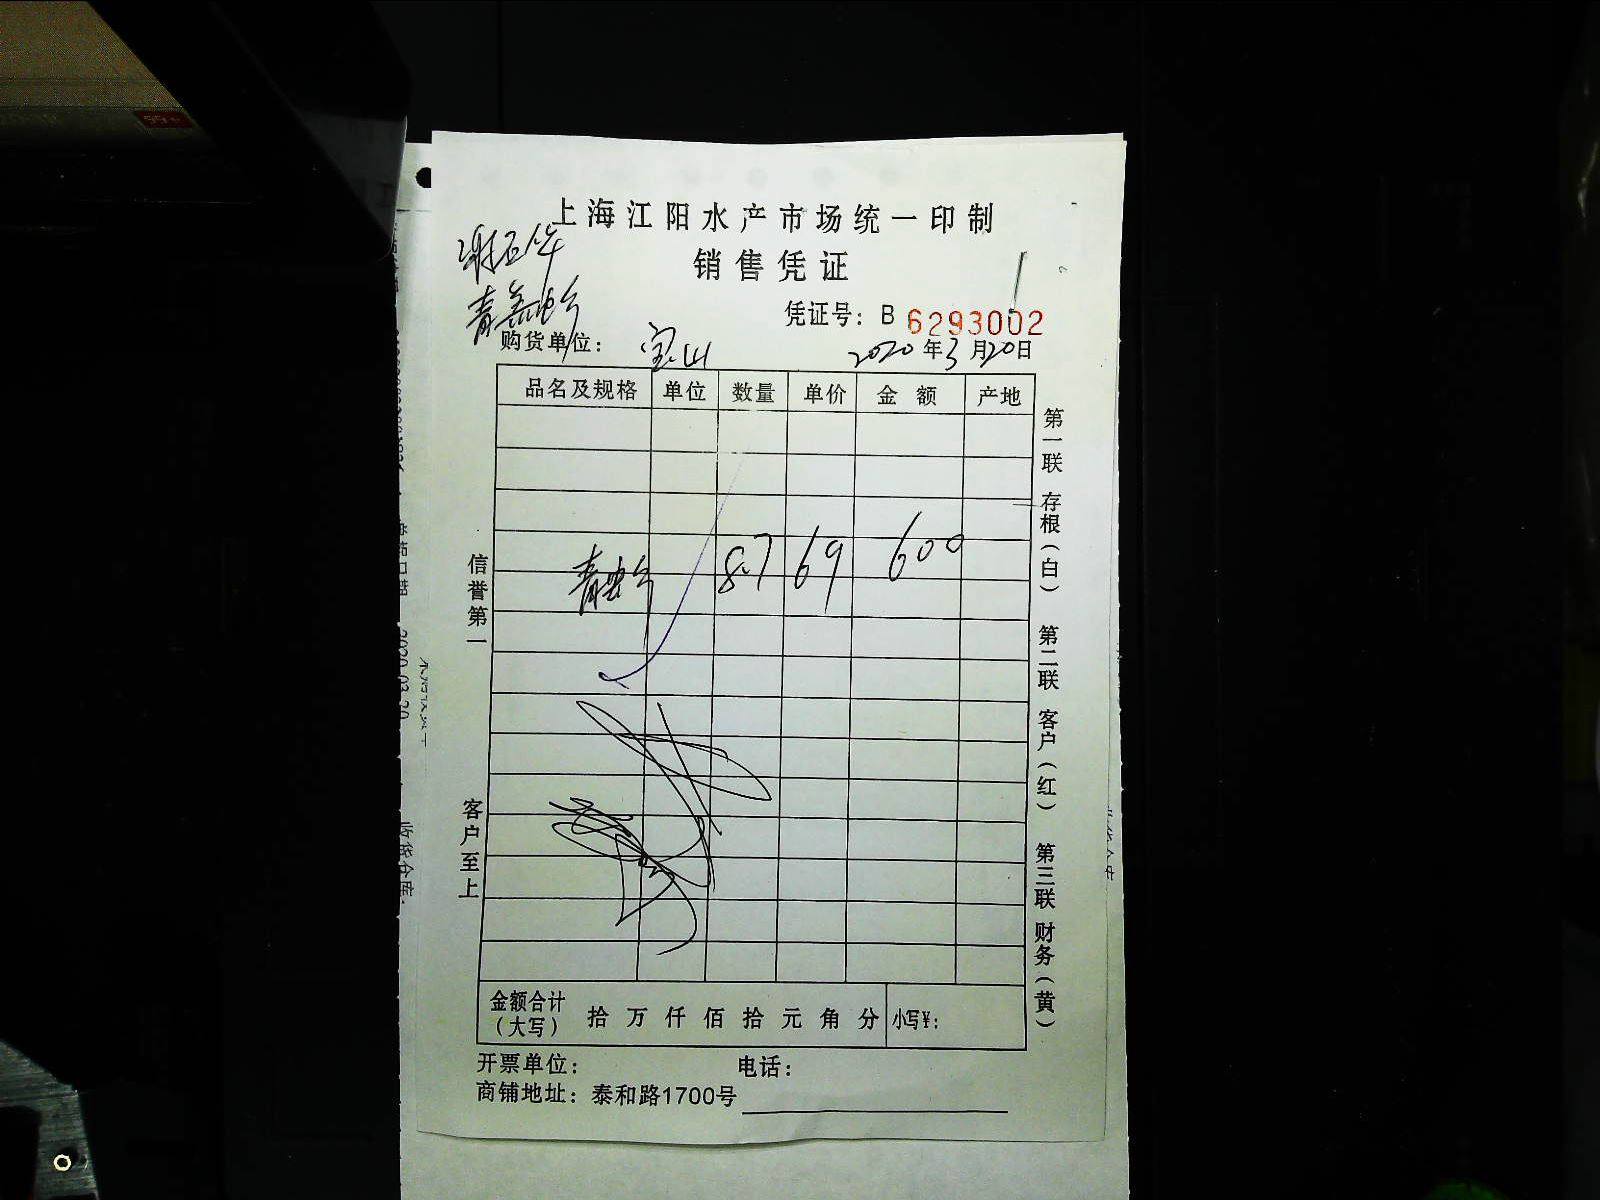 上海江阳水产市场统一印制
销售凭证
凭证号：B 6293002
购货单位：宝山 2020年3月20日
品名及规格 单位 数量 单价 金额 产地
8.7 69 600
信誉第一
客户至上
第一联 存根（白） 第二联 客户（红） 第三联 财务（黄）
金额合计（大写） 拾 万 仟 佰 拾 元 角 分 小写¥：
开票单位： 电话：
商铺地址：泰和路1700号